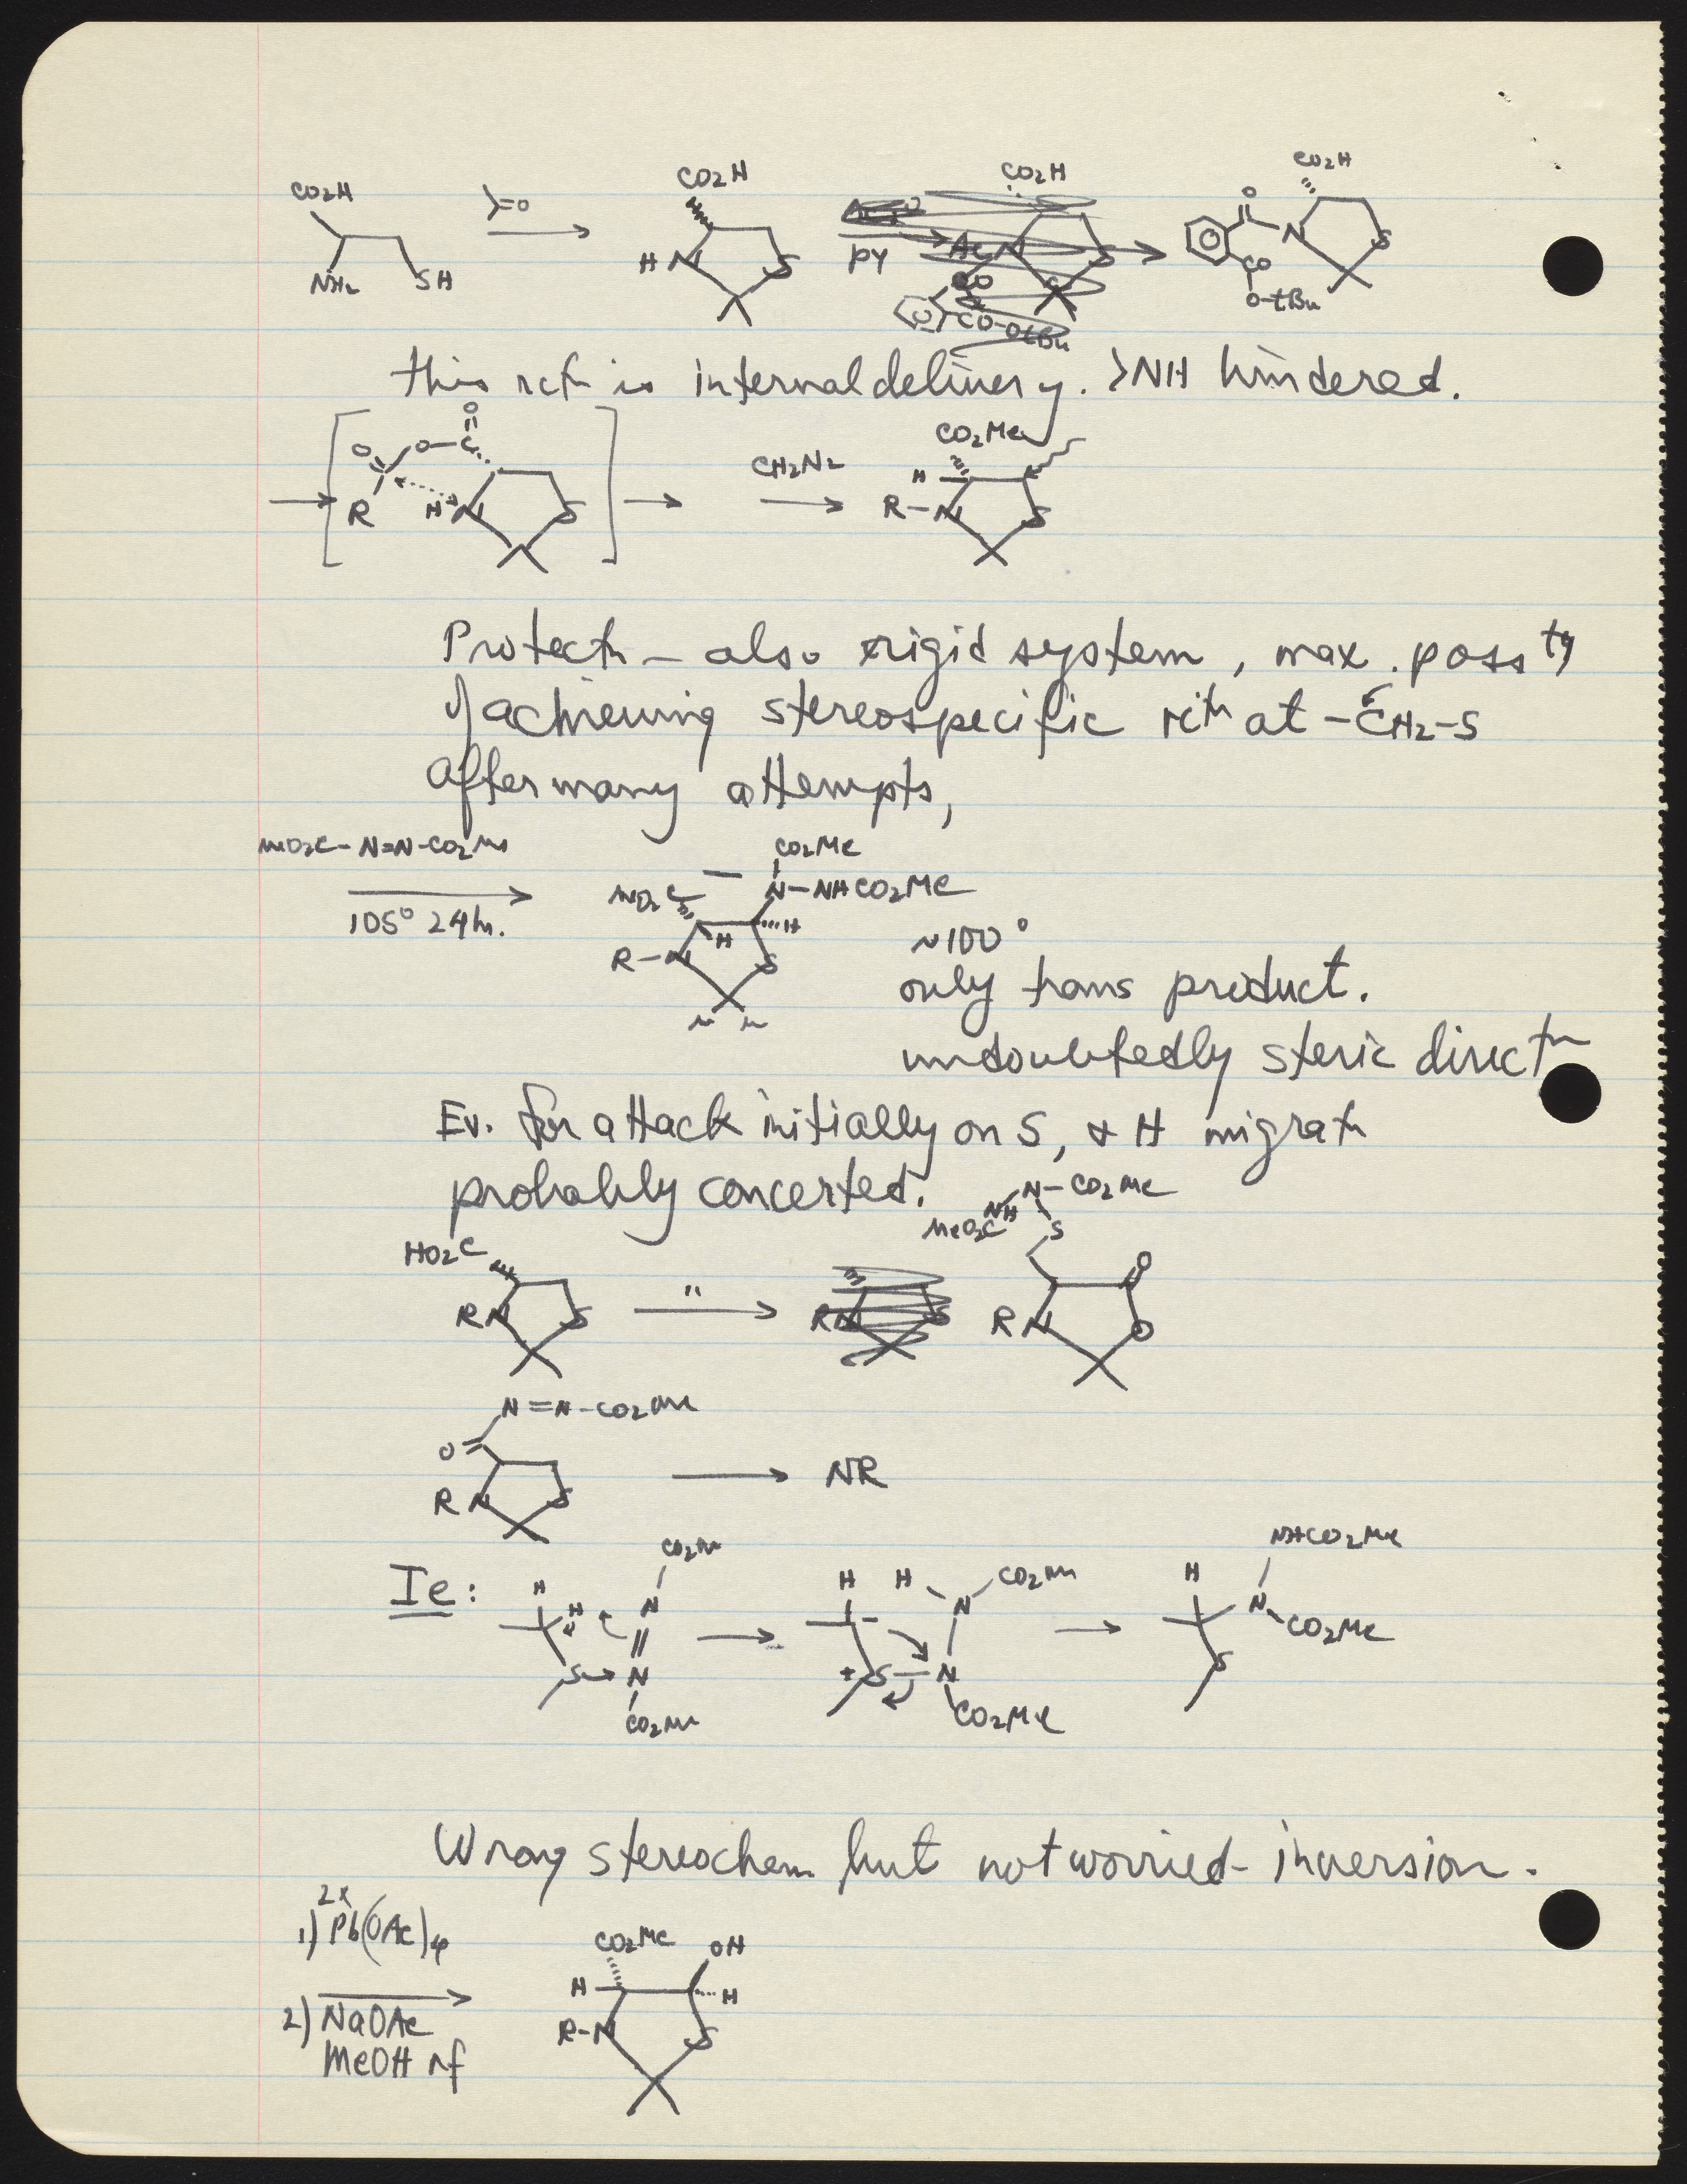 CO2H
NH2 SH
=O
CO2H
H N S
PY
CO2H
Ac N S
CO
CO-OtBu
CO2H
O
N S
CO
O-tBu
this rctn is internal delivery. >NH hindered.
O
O O-C
R H N S
CH2N2
CO2Me
H
R-N S
Protectn - also rigid system, max. possty
of achieving stereospecific rctn at -CH2-S
After many attempts,
MeO2C-N=N-CO2Me
105° 24hr.
CO2Me
MeO2C N-NHCO2Me
H H
R-N S
~100°
only trans product.
undoubtedly steric directn
Ev. for attack initially on S, & H migratn
probably concerted.
N-CO2Me
NH
MeO2C S
HO2C
RN S
"
RN S
O
RN O
N=N-CO2Me
O
RN S
NR
Ie:
CO2Me
H
H N
S N
CO2Me
H H CO2Me
N
+S-N
CO2Me
NHCO2Me
H
N
CO2Me
S
Wrong stereochem but not worried - inversion.
2x
1) Pb(OAc)4
2) NaOAc
MeOH rf
CO2Me OH
H H
R-N S